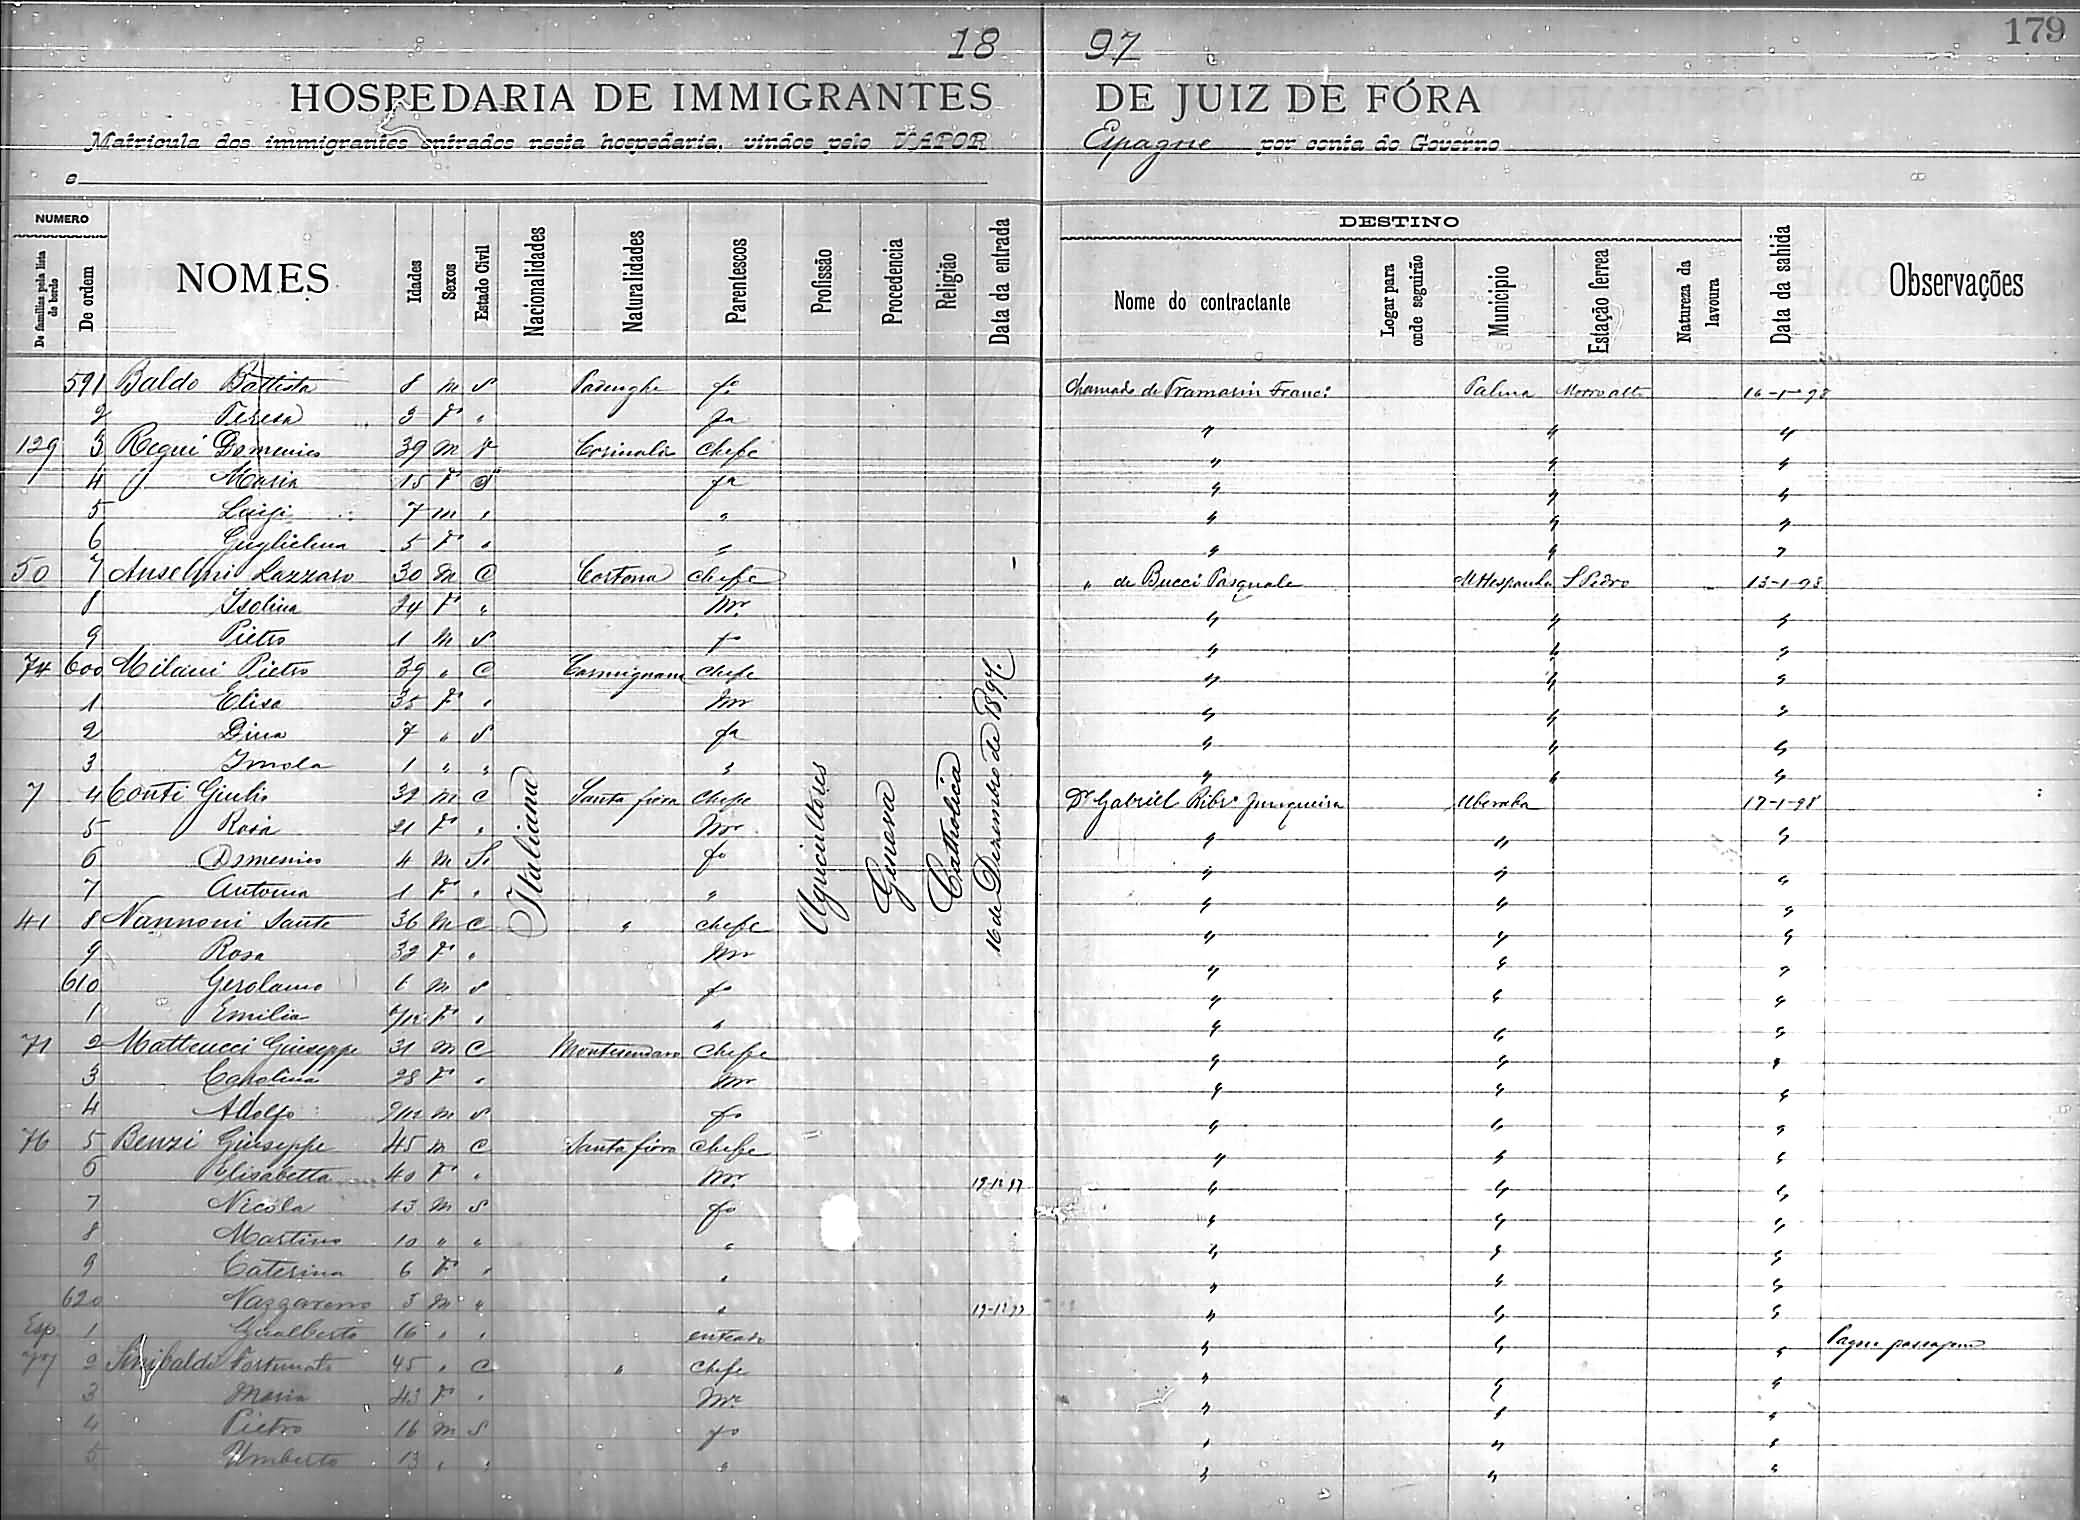 179
18 97
HOSPEDARIA DE IMMIGRANTES DE JUIZ DE FÓRA
Matricula dos immigrantes entrados nesta hospedaria, vindos pelo VAPOR Espagne por conta do Governo
e
NUMERO
DESTINO
De familias pela lista de bordo
De ordem
NOMES
Idades
Sexos
Estado Civil
Nacionalidades
Naturalidades
Parentescos
Profissão
Procedencia
Religião
Data da entrada
Nome do contractante
Logar para onde seguirão
Municipio
Estação ferrea
Natureza da lavoura
Data da sahida
Observações
591 Baldo Battista 8 m S fo chamado de Tramarin Franc. Palma Morro alto 16-1-98
2 Teresa 3 F " fa " " "
129 3 Regui Domenico 39 m V Corinaldo chefe " " "
4 Maria 15 F S fa " " "
5 Luigi 7 m " " " " "
6 Guglielma 5 F " " " " "
50 7 Anselmi Lazzaro 30 m C Cortona chefe " de Bucci Pasquale M Hespanha S Pedro 13-1-98
8 Isolina 24 F " Mr " " "
9 Pietro 1 m S fo " " "
74 600 Milani Pietro 39 " C Carmignano chefe " " "
1 Elisa 35 F " Mr " " "
2 Dina 7 " S fa " " "
3 Imola 1 " " " " " "
7 4 Conti Giulio 32 m C Santa fiora chefe Dr Gabriél Ribro Junqueira Uberaba 17-1-98
5 Rosa 21 F " Mr " " "
6 Domenico 4 m S fo " " "
7 Antonia 1 F " " " " "
41 8 Nannoni Sante 36 m C " chefe " " "
9 Rosa 32 F " Mr " " "
610 Gerolamo 6 m S fo " " "
1 Emilia F " " " " "
71 2 Matteucci Giuseppe 31 m C chefe " " "
3 Carolina 28 F " Mr " " "
4 Adolfo 9/12 m S fo " " "
76 5 Benzi Giuseppe 45 m C Santa fiora chefe " " "
6 Elisabetta 40 F " Mr " " "
7 Nicola 13 m S fo " " "
8 Martino 10 " " " " " "
9 Caterina 6 F " " " " "
620 Nazzareno 3 m " " " " "
Esp. 1 Gualberto 16 " " enteado " " " Pagou passagem
77 2 Sinibaldi Fortunato 45 " C " chefe " " "
3 Maria 43 F " Mr " " "
4 Pietro 16 m S fo " " "
5 Umberto 13 " " " " " "
Italiana
Agricultores
Genova
Catholica
16 de Dezembro de 1897.